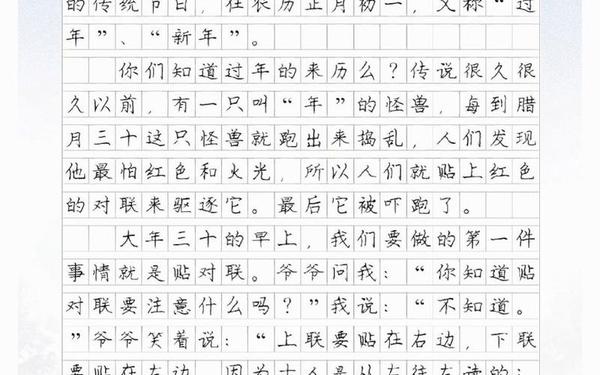 的传统节日，在农历正月初一，又称“过
年”、“新年”。
你们知道过年的来历么？传说很久很
久以前，有一只叫“年”的怪兽，每到腊
月三十这只怪兽就跑出来捣乱，人们发现
他最怕红色和火光，所以人们就贴上红色
的对联来驱逐它。最后它被吓跑了。
大年三十的早上，我们要做的第一件
事情就是贴对联。爷爷问我：“你知道贴
对联要注意什么吗？”我说：“不知道。
”爷爷笑着说：“上联要贴在右边，下联
要贴在左边，因为古人是从右往左读的；